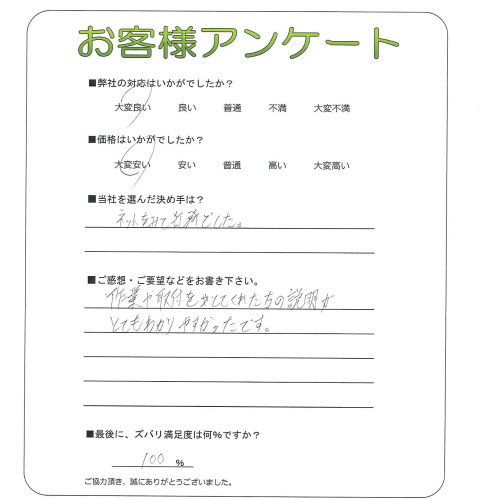 お客様アンケート
■弊社の対応はいかがでしたか？
大変良い 良い 普通 不満 大変不満
■価格はいかがでしたか？
大変安い 安い 普通 高い 大変高い
■当社を選んだ決め手は？
ネットをみて でした。
■ご感想・ご要望などをお書き下さい。
作業や取付をしてくれた方の説明が
とてもわかりやすかったです。
■最後に、ズバリ満足度は何％ですか？
100 ％
ご協力頂き、誠にありがとうございました。